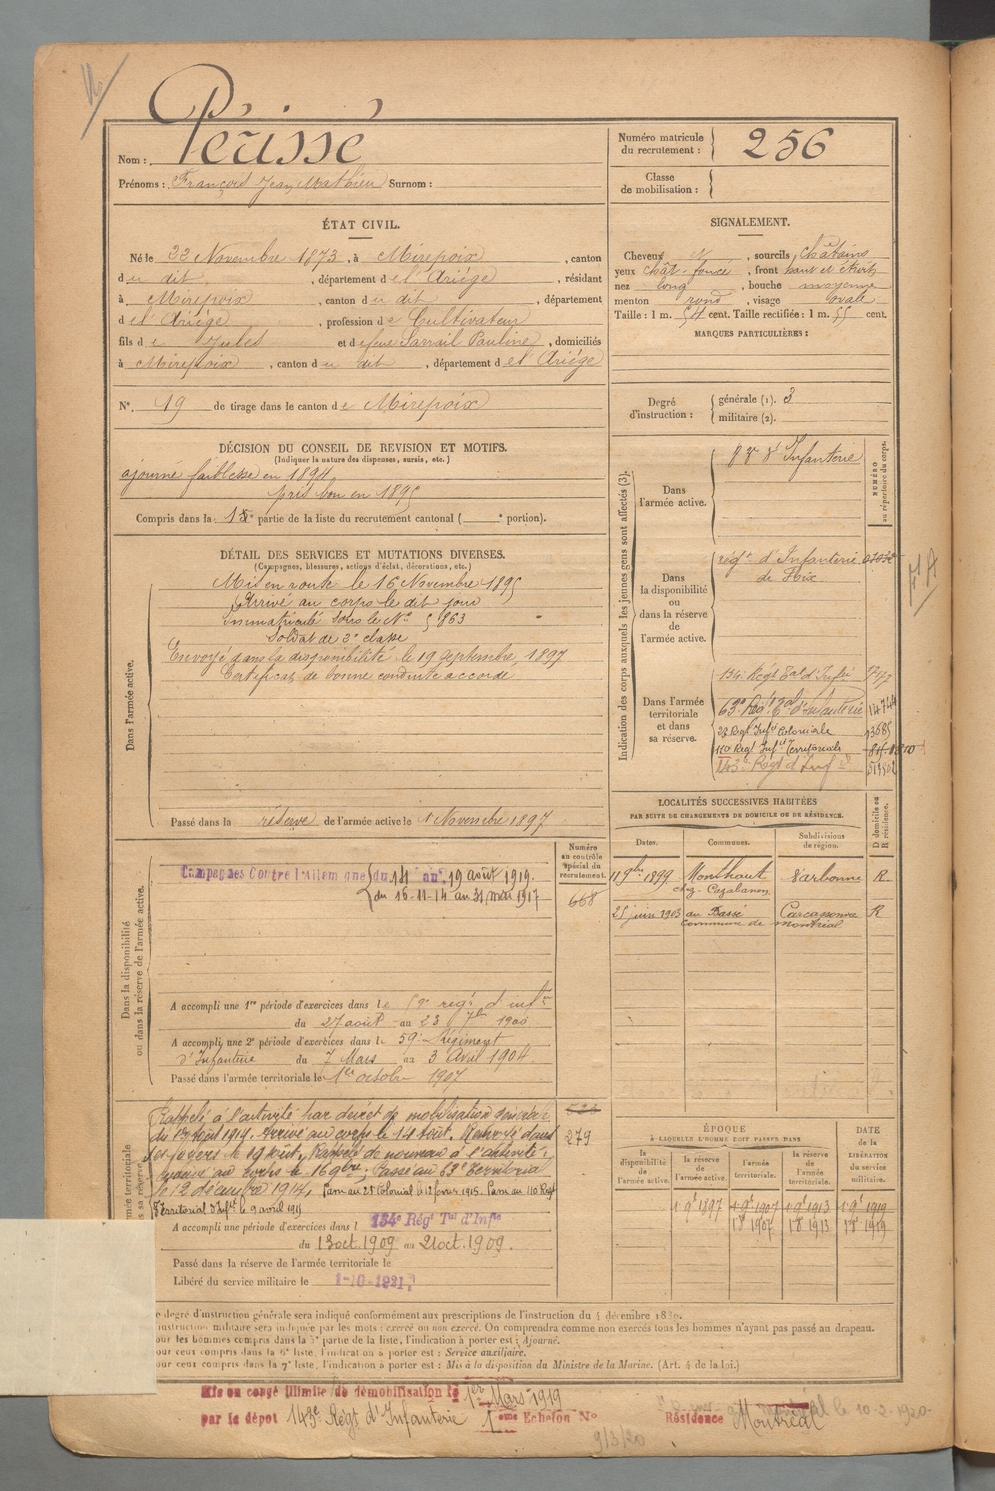 Périssé
Nom :
Prénoms : François Jean Mathieu Surnom :
Numéro matricule du recrutement : 256
Classe de mobilisation :
ÉTAT CIVIL.
Né le 22 Novembre 1873, à Mirepoix, canton
du dit, département de l'Ariège, résidant
à Mirepoix, canton du dit, département
de l'Ariège, profession de Cultivateur
fils de Jules et de feue Sarrail Pauline, domiciliés
à Mirepoix, canton du dit, département de l'Ariège
N° 19 de tirage dans le canton de Mirepoix
SIGNALEMENT.
Cheveux N, sourcils châtains
yeux chât. foncé, front haut et étroit
nez long, bouche moyenne
menton rond, visage ovale
Taille : 1 m. 54 cent. Taille rectifiée : 1 m. 55 cent.
MARQUES PARTICULIÈRES :
Degré d'instruction : générale (1). 3
militaire (2).
DÉCISION DU CONSEIL DE REVISION ET MOTIFS.
(Indiquer la nature des dispenses, sursis, etc.)
ajourné faiblesse en 1894
pris bon en 1895
Compris dans la 1e partie de la liste du recrutement cantonal ( e portion).
DÉTAIL DES SERVICES ET MUTATIONS DIVERSES.
(Campagnes, blessures, actions d'éclat, décorations, etc.)
Dans l'armée active.
Mis en route le 16 Novembre 1895
Arrivé au corps le dit jour
Immatriculé sous le N° 5863
Soldat de 2e classe
Envoyé dans la disponibilité le 19 septembre 1897
Certificat de bonne conduite accordé
Passé dans la réserve de l'armée active le 1 Novembre 1897
Indication des corps auxquels les jeunes gens sont affectés (3).
NUMÉRO au répertoire du corps.
Dans l'armée active.
d'Infanterie
Dans la disponibilité ou dans la réserve de l'armée active.
régt d'Infanterie
de Foix
Dans l'armée territoriale et dans sa réserve.
134e Régt Tal d'Infie
63e Régt Tal d'Infanterie 14744
23 Regt Infie Coloniale 13685
110 Regt Infie Territoriale
143e Régt d'Infie
LOCALITÉS SUCCESSIVES HABITÉES
PAR SUITE DE CHANGEMENTS DE DOMICILE OU DE RÉSIDENCE.
D domicile ou R résidence.
Dates. Communes. Subdivisions de région.
11 9bre 1899 Monthaut Narbonne R.
chez Cazabanon
25 juin 1903 au Bassé Carcassonne R
commune de Montréal
Dans la disponibilité ou dans la réserve de l'armée active.
Numéro au contrôle spécial du recrutement.
668
Campagnes Contre l'Allemagne du 14 au 19 août 1919.
du 16-11-14 au 31 mai 1917
A accompli une 1re période d'exercices dans le 59e régt d'infie
du 27 août au 23 7bre 1900
A accompli une 2e période d'exercices dans le 59e Régiment
d'Infanterie du 7 Mars au 3 Avril 1904.
Passé dans l'armée territoriale le 1er octobre 1907
Rappelé à l'activité par décret de mobilisation générale
du 1er août 1914. Arrivé au corps le 14 août. Renvoyé dans
ses foyers le 19 août. Rappelé de nouveau à l'activité,
arrivé au corps le 16 9bre; Passé au 63e Territorial
le 12 décembre 1914. Passé au 23 Colonial le 12 février 1915. Passé au 110 Regt
Territorial d'Infie le 9 avril 1915
279
A accompli une période d'exercices dans l 134e Régt Tal d'Infie
du 13 oct. 1909 au 21 oct. 1909.
Passé dans la réserve de l'armée territoriale le
Libéré du service militaire le 1-10-1921.
ÉPOQUE
À LAQUELLE L'HOMME DOIT PASSER DANS
DATE de la LIBÉRATION du service militaire.
la disponibilité de l'armée active. la réserve de l'armée active. l'armée territoriale. la réserve de l'armée territoriale.
1 9bre 1897 1 9bre 1907 1 9bre 1913 1 9bre 1919
1 8bre 1907 1 8bre 1913 1 8bre 1919
e degré d'instruction générale sera indiqué conformément aux prescriptions de l'instruction du 4 décembre 1889.
'instruction militaire sera indiquée par les mots : exercé ou non exercé. On comprendra comme non exercés tous les hommes n'ayant pas passé au drapeau.
our les hommes compris dans la 5e partie de la liste, l'indication à porter est : Ajourné.
our ceux compris dans la 6e liste, l'indication à porter est : Service auxiliaire.
our ceux compris dans la 7e liste, l'indication à porter est : Mis à la disposition du Ministre de la Marine. (Art. 4 de la loi.)
Mis en congé illimité de démobilisation le 1er Mars 1919
par le dépôt 143e Régt d'Infanterie 1ème Echelon N° Résidence Montréal
le 10-2-1920
9/3/20